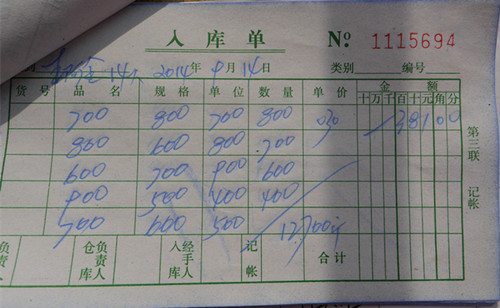 入库单 № 1115694
14人 2014年9月14日 类别 编号
货号 品名 规格 单位 数量 单价 金额
十万千百十元角分
700 800 700 800 38100
800 600 800 700
600 700 800 600
800 500 400 400
500 600 500 12700
负责人 仓库负责人 经手人 记帐 合计
第三联 记帐